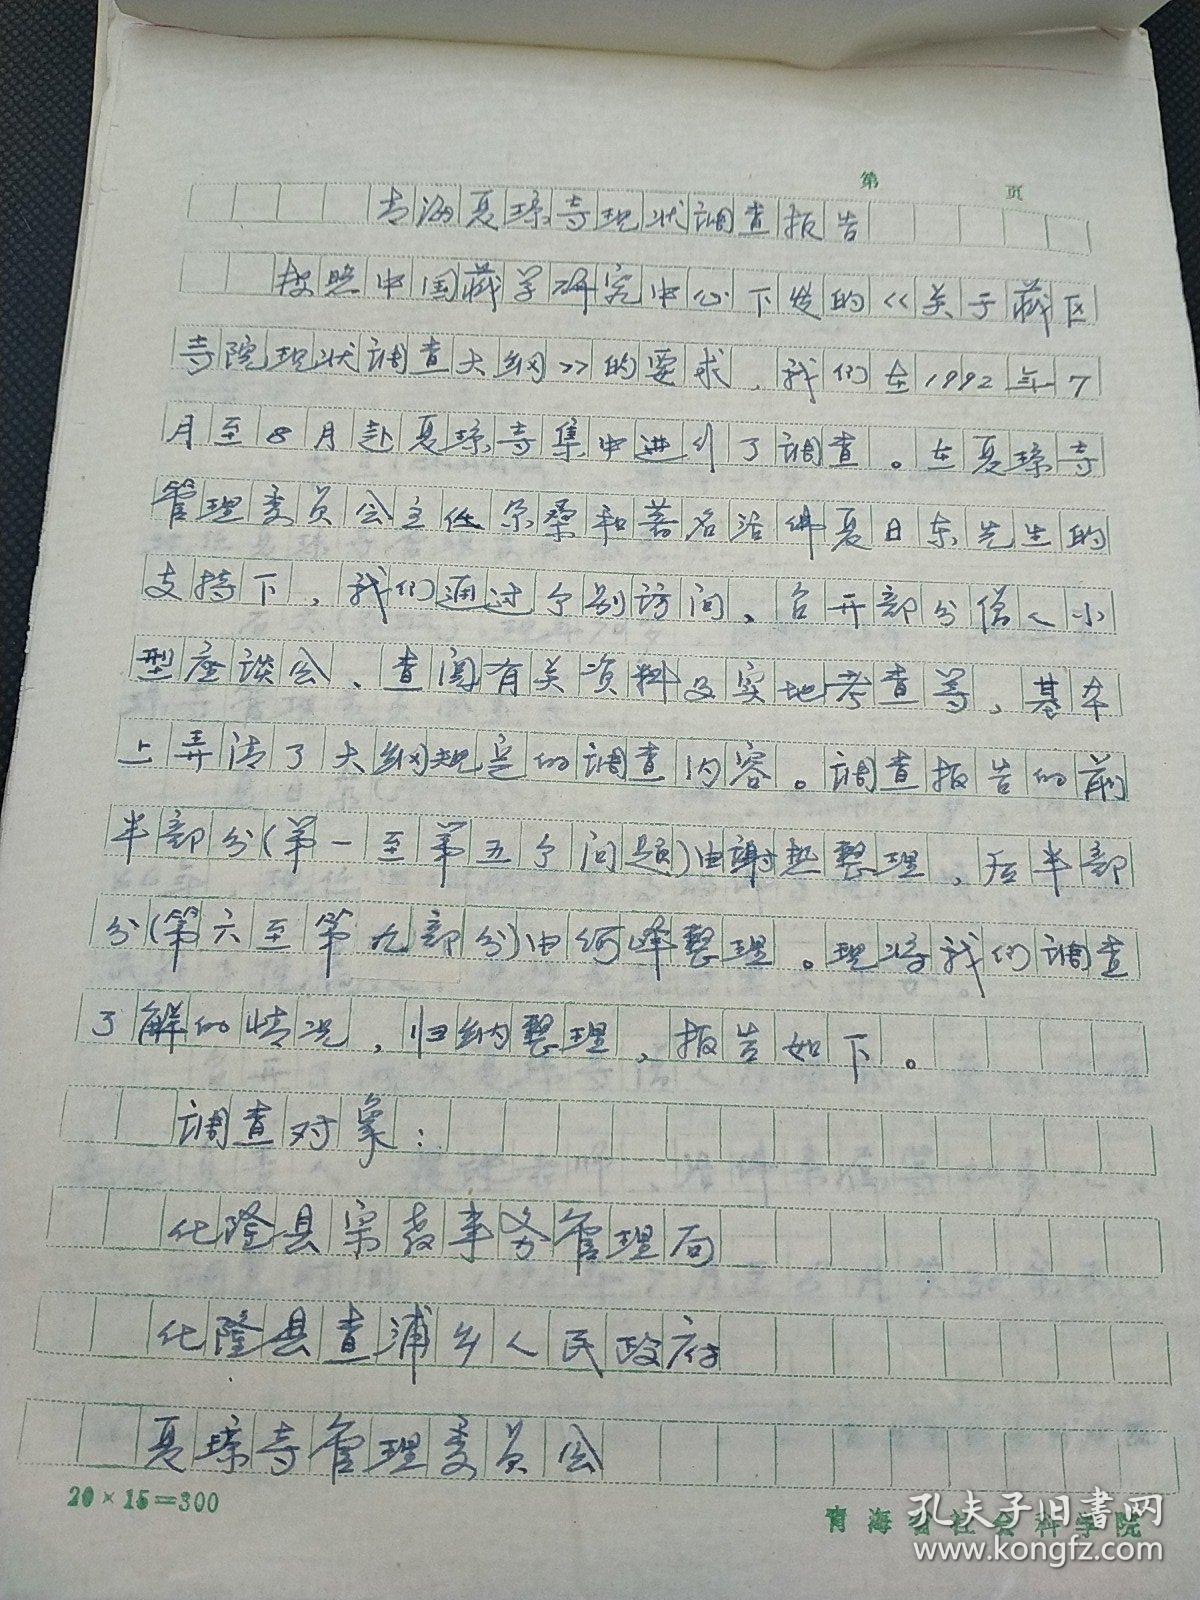 第 页
青海夏琼寺现状调查报告
按照中国藏学研究中心下发的《关于藏区
寺院现状调查大纲》的要求，我们在1992年7
月至8月赴夏琼寺集中进行了调查。在夏琼寺
管理委员会主任尕桑和著名活佛夏日东先生的
支持下，我们通过个别访问、召开部分僧人小
型座谈会、查阅有关资料及实地考查等，基本
上弄清了大纲规定的调查内容。调查报告的前
半部分(第一至第五个问题)由谢热整理，后半部
分(第六至第九部分)由何峰整理。现将我们调查
了解的情况，归纳整理，报告如下。
调查对象：
化隆县宗教事务管理局
化隆县查浦乡人民政府
夏琼寺管理委员会
20×15=300
青海省社会科学院
孔夫子旧书网
www.kongfz.com